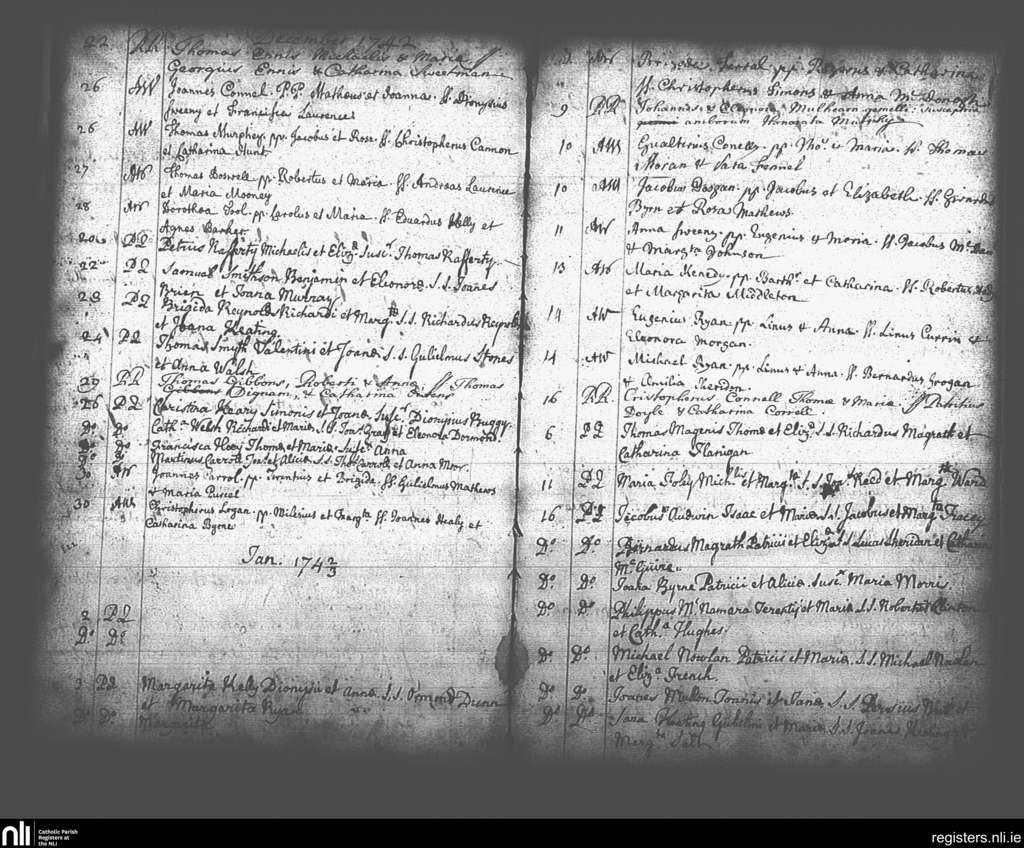 December 1742
22 RR Thomas Ennis Michaelis & Maria ff
Georgius Ennis & Catharina Sweetman
26 AW Joannes Connel. P.P. Matheus et Joanna. ff. Dionysius
Sweny et Francisca Laurences
26 AW Thomas Murphey. pp. Jacobus et Rose. ff. Christopherus Cannon
et Catharina Hunt
27 AW Thomas Boswell pp. Robertus et Maria. ff. Andreas Laurence
et Maria Mooney
28 AW Dorothea pp. Carolus et Maria. ff. Eduardus Kelly et
Agnes Barker
20 PL Petrus Rafferty Michaelis et Eliz.a Susc.t Thomas Rafferty
22 PL Samuel Smithson Benjamin et Eleonora S.S. Joanes
Brien et Joana Murray
23 PL Brigida Reynolds Richardi et Marg.ta S.S. Richardus Reynolds
et Joana Keating
24 PL Thomas Smith Valentini et Joana S.S. Gulielmus Stones
et Anna Walsh
29 RR Thomas Gibbons, Roberti & Anna ff Thomas
Dignam, & Catharina
26 PL Christina Heary Simonis et Joana Susc.t Dionysius
Do Do Cath.a Welsh Richardi et Maria S.S. Gray et Eleonora Dermond
Do Do Francisca Thoma et Maria Susc.t Anna
Do Do Martinus Carroll et Alicia S.S. Tho.s Carroll et Anna Moor
30 AW Joannes Carrol. pp. Terentius et Brigida ff. Gulielmus Mathews
& Maria Pursel
30 AW Christopherus Logan. pp. Milerius et Marg.ta ff. Joannes Healy et
Catharina Byrne
Jan. 1742/3
2 PL
Do Do
3 PL Margarita Kelly Dionysii et Anna S.S. Osmond Dunn
et Margarita Ryan
Do Do Margarita
AW pp. & Catharina
ff. Christopherus Simons & Anna McDonogh
9 RR Johannas & Eleonora Mulhearn gemelli. Susceptrix
amborum Honorata Murphy
10 AW Gualterius Conelly. pp. Tho.s & Maria. ff. Thomas
Moran & Sara Fennel
10 AW Jacobus pp. Jacobus et Elizabeth. ff.
Byrn et Rosa Mathews
11 AW Anna Sweny. pp. Eugenius & Maria. ff. Jacobus
& Marg.ta Johnson
13 AW Maria Kenedy. pp. Barth.s et Catharina. ff. Robertus
et Margarita Middleton
14 AW Eugenius Ryan. pp. Linus & Anna. ff. Linus Currin &
Eleonora Morgan.
14 AW Michael Ryan. pp. Linus & Anna. ff. Bernardus Grogan
& Amilia Sheridon.
16 RR Cristopherus Connell Thoma & Maria ff Patritius
Doyle & Catharina Correll
6 PL Thomas Magenis Thoma et Eliz.a S.S. Richardus Magrath et
Catharina Flanigan
11 PL Maria Foley Mich.lis et Marg.ta S.S. Reed et Marg.ta Ward
16 PL Jacobus Audwin Isaac et Maria S.S. Jacobus et Marg.ta Tracey
Do Do Bernardus Magrath Patricii et Eliz.a S.S. Lucas Sheridan et Catharina
McGuire
Do Do Joana Byrne Patricii et Alicia. Susc.t Maria Morris
Do Do Philippus McNamara Terentij et Maria S.S. Robertus Clinton
et Cath.a Hughes
Do Do Michael Nowlan Patricii et Maria S.S. Michael Nowlan
et Eliz.a French
Do Do Joanes Mullon Joannis et Jana S.S.
Do Do Jana Keating Gulielmi et Maria S.S. Joanes Keating et
Marg.ta
nli
Catholic Parish
Registers at
the NLI
registers.nli.ie